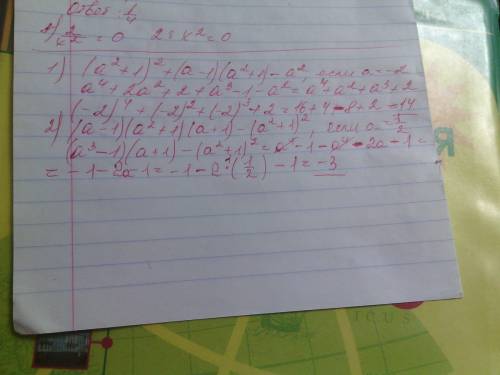 Ответ: 1/4
2) 2/x² = 0 2 : x² = 0
1) (a²+1)² + (a-1)(a²+1) - a², если a = -2
a⁴ + 2a² + 2 + a³ - 1 - a² = a⁴ + a² + a³ + 2
(-2)⁴ + (-2)² + (-2)³ + 2 = 16 + 4 - 8 + 2 = 14
2) (a-1)(a²+1)(a+1) - (a²+1)², если a = 1/2
(a³-1)(a+1) - (a²+1)² = a⁴ - 1 - a⁴ - 2a - 1 =
= -1 - 2a - 1 = -1 - 2 · (1/2) - 1 = -3
ICUS